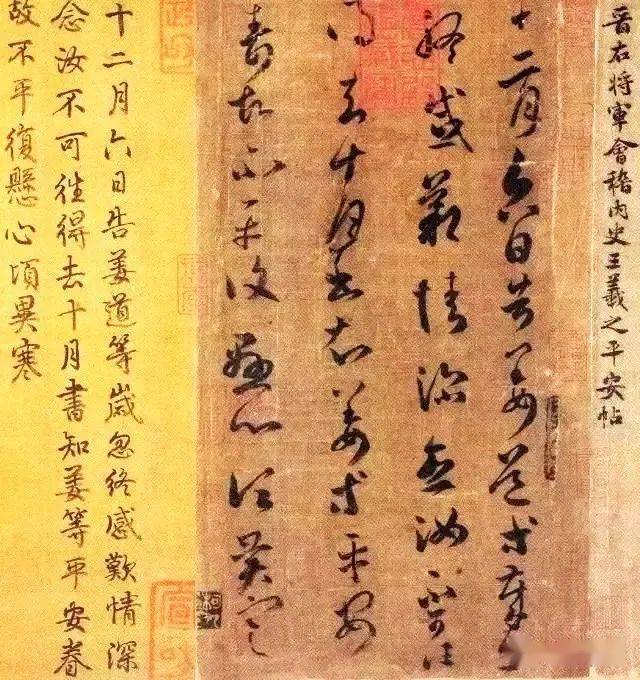 晉右將軍會稽內史王羲之平安帖
十二月六日告姜道等歲忽
終感歎情深念汝不可往
得去十月書知姜等平安
眷故不平復懸心頃異寒
十二月六日告姜道等歲忽終感歎情深
念汝不可往得去十月書知姜等平安眷
故不平復懸心頃異寒